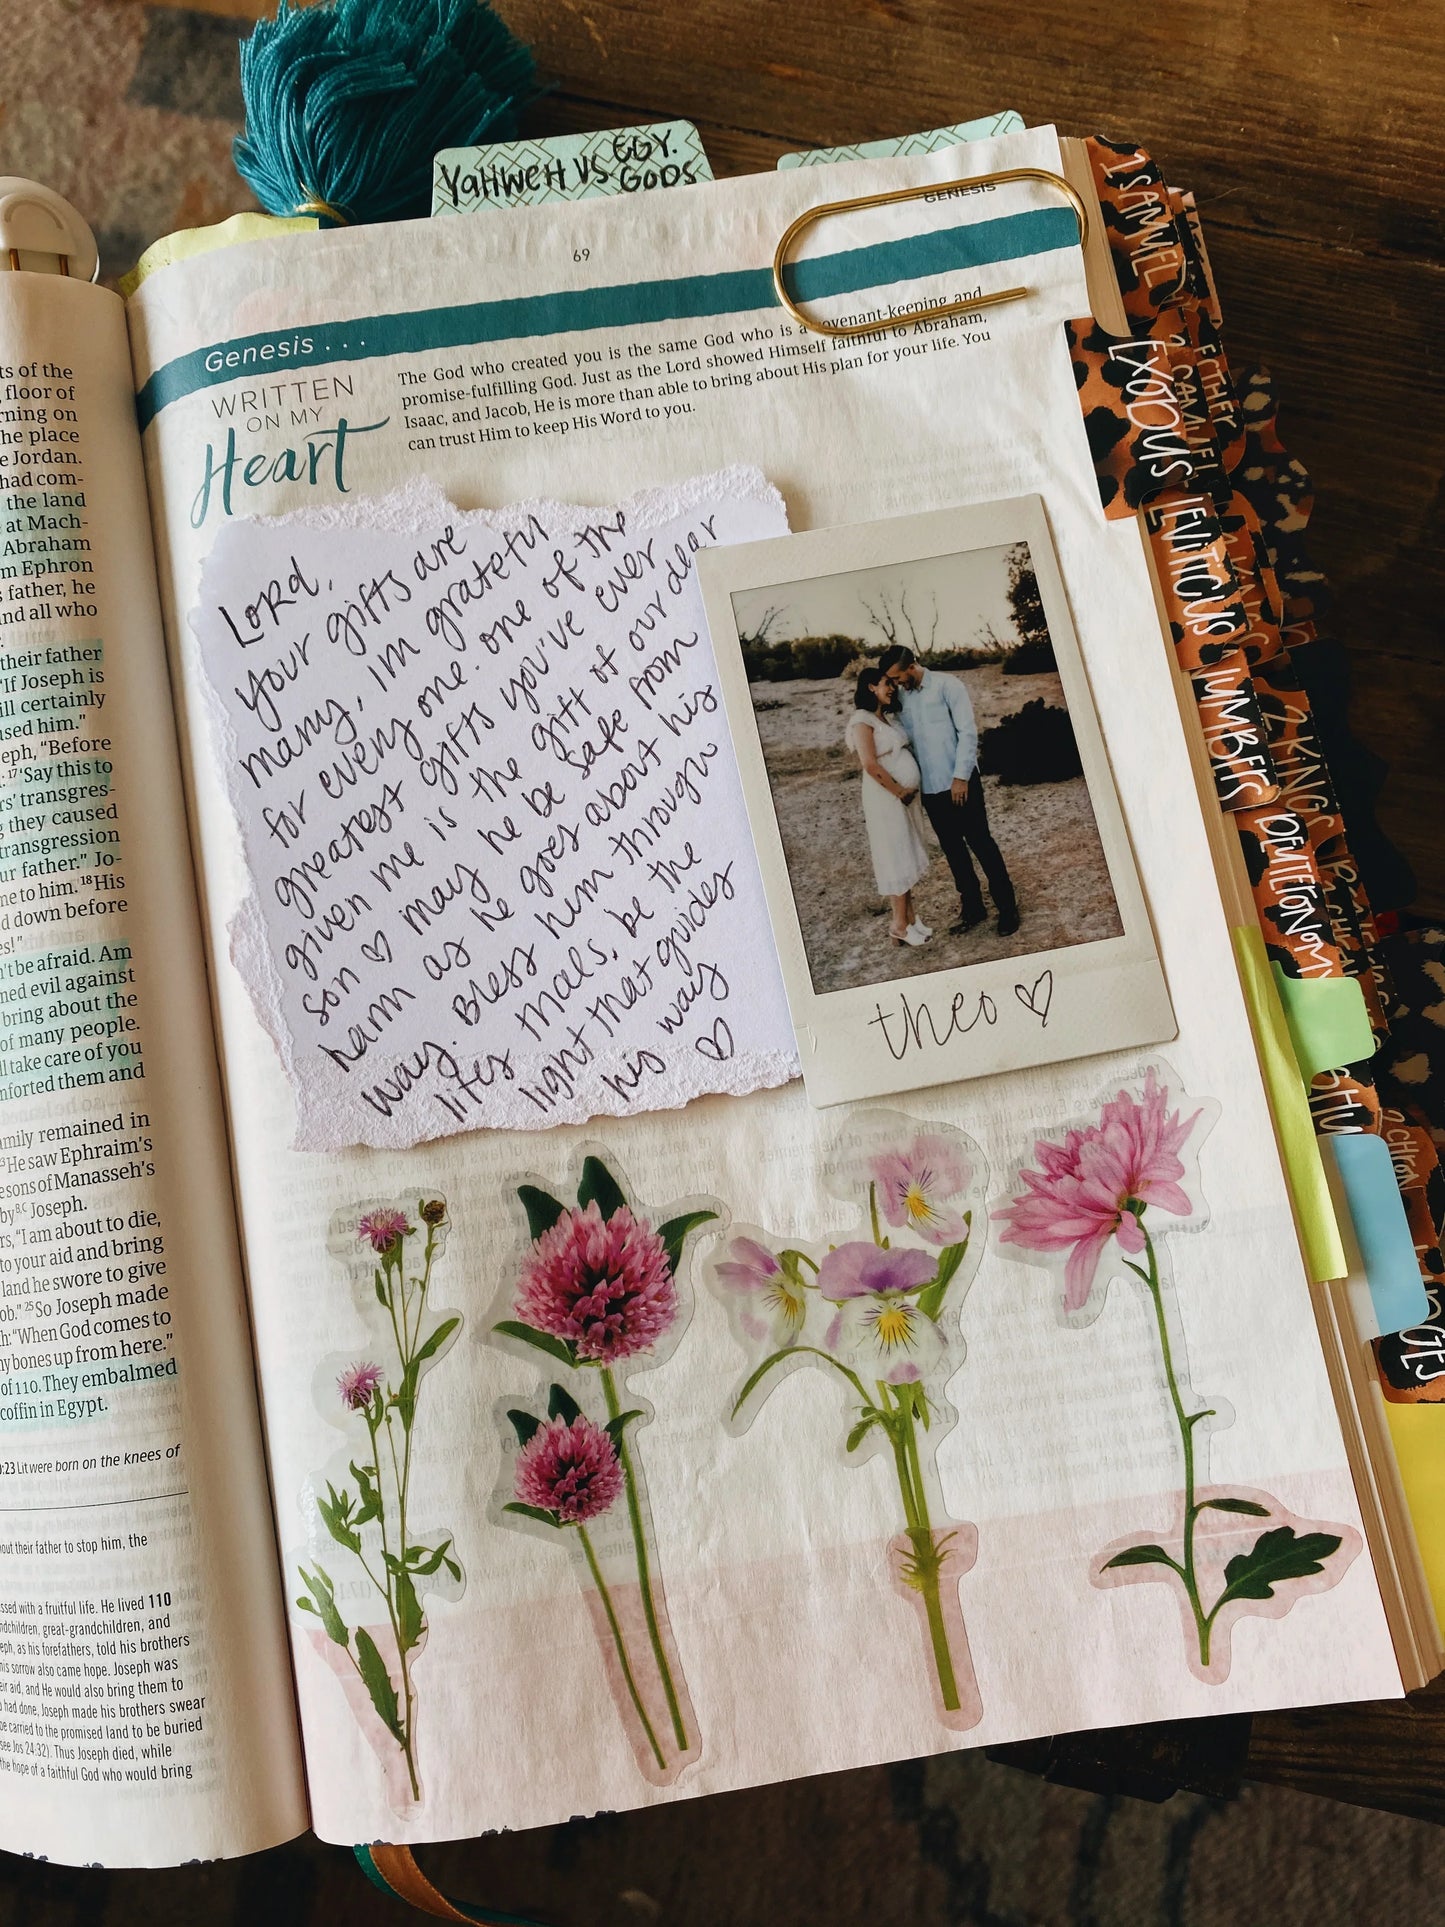 YaHWeH VS EGY. GODS
GENESIS
69
Genesis . . .
WRITTEN
ON MY
Heart
The God who created you is the same God who is a covenant-keeping and
promise-fulfilling God. Just as the Lord showed Himself faithful to Abraham,
Isaac, and Jacob, He is more than able to bring about His plan for your life. You
can trust Him to keep His Word to you.
Lord,
your gifts are
many, im grateful
for every one. one of the
greatest gifts you've ever
given me is the gift of our dear
son ♡ may he be safe from
harm as he goes about his
way. Bless him through
lifes trials, be the
light that guides
his way ♡
theo ♡
1 SAMUEL
EXODUS
2 SAMUEL
ESTHER
LEVITICUS
NUMBERS
2 KINGS
DEUTERONOMY
2 CHRON
JUDGES
ts of the
floor of
rning on
he place
e Jordan.
had com-
the land
at Mach-
Abraham
m Ephron
s father, he
nd all who
their father
"If Joseph is
ill certainly
used him."
seph, "Before
17 'Say this to
rs' transgres-
g they caused
transgression
ur father." Jo-
me to him. 18 His
d down before
es!"
n't be afraid. Am
ned evil against
bring about the
of many people.
ll take care of you
mforted them and
amily remained in
23 He saw Ephraim's
e sons of Manasseh's
by B,C Joseph.
rs, "I am about to die,
to your aid and bring
land he swore to give
ob." 25 So Joseph made
h: "When God comes to
my bones up from here."
of 110. They embalmed
coffin in Egypt.
0:23 Lit were born on the knees of
out their father to stop him, the
ssed with a fruitful life. He lived 110
ndchildren, great-grandchildren, and
eph, as his forefathers, told his brothers
his sorrow also came hope. Joseph was
eir aid, and He would also bring them to
had done, Joseph made his brothers swear
be carried to the promised land to be buried
see Jos 24:32). Thus Joseph died, while
the hope of a faithful God who would bring